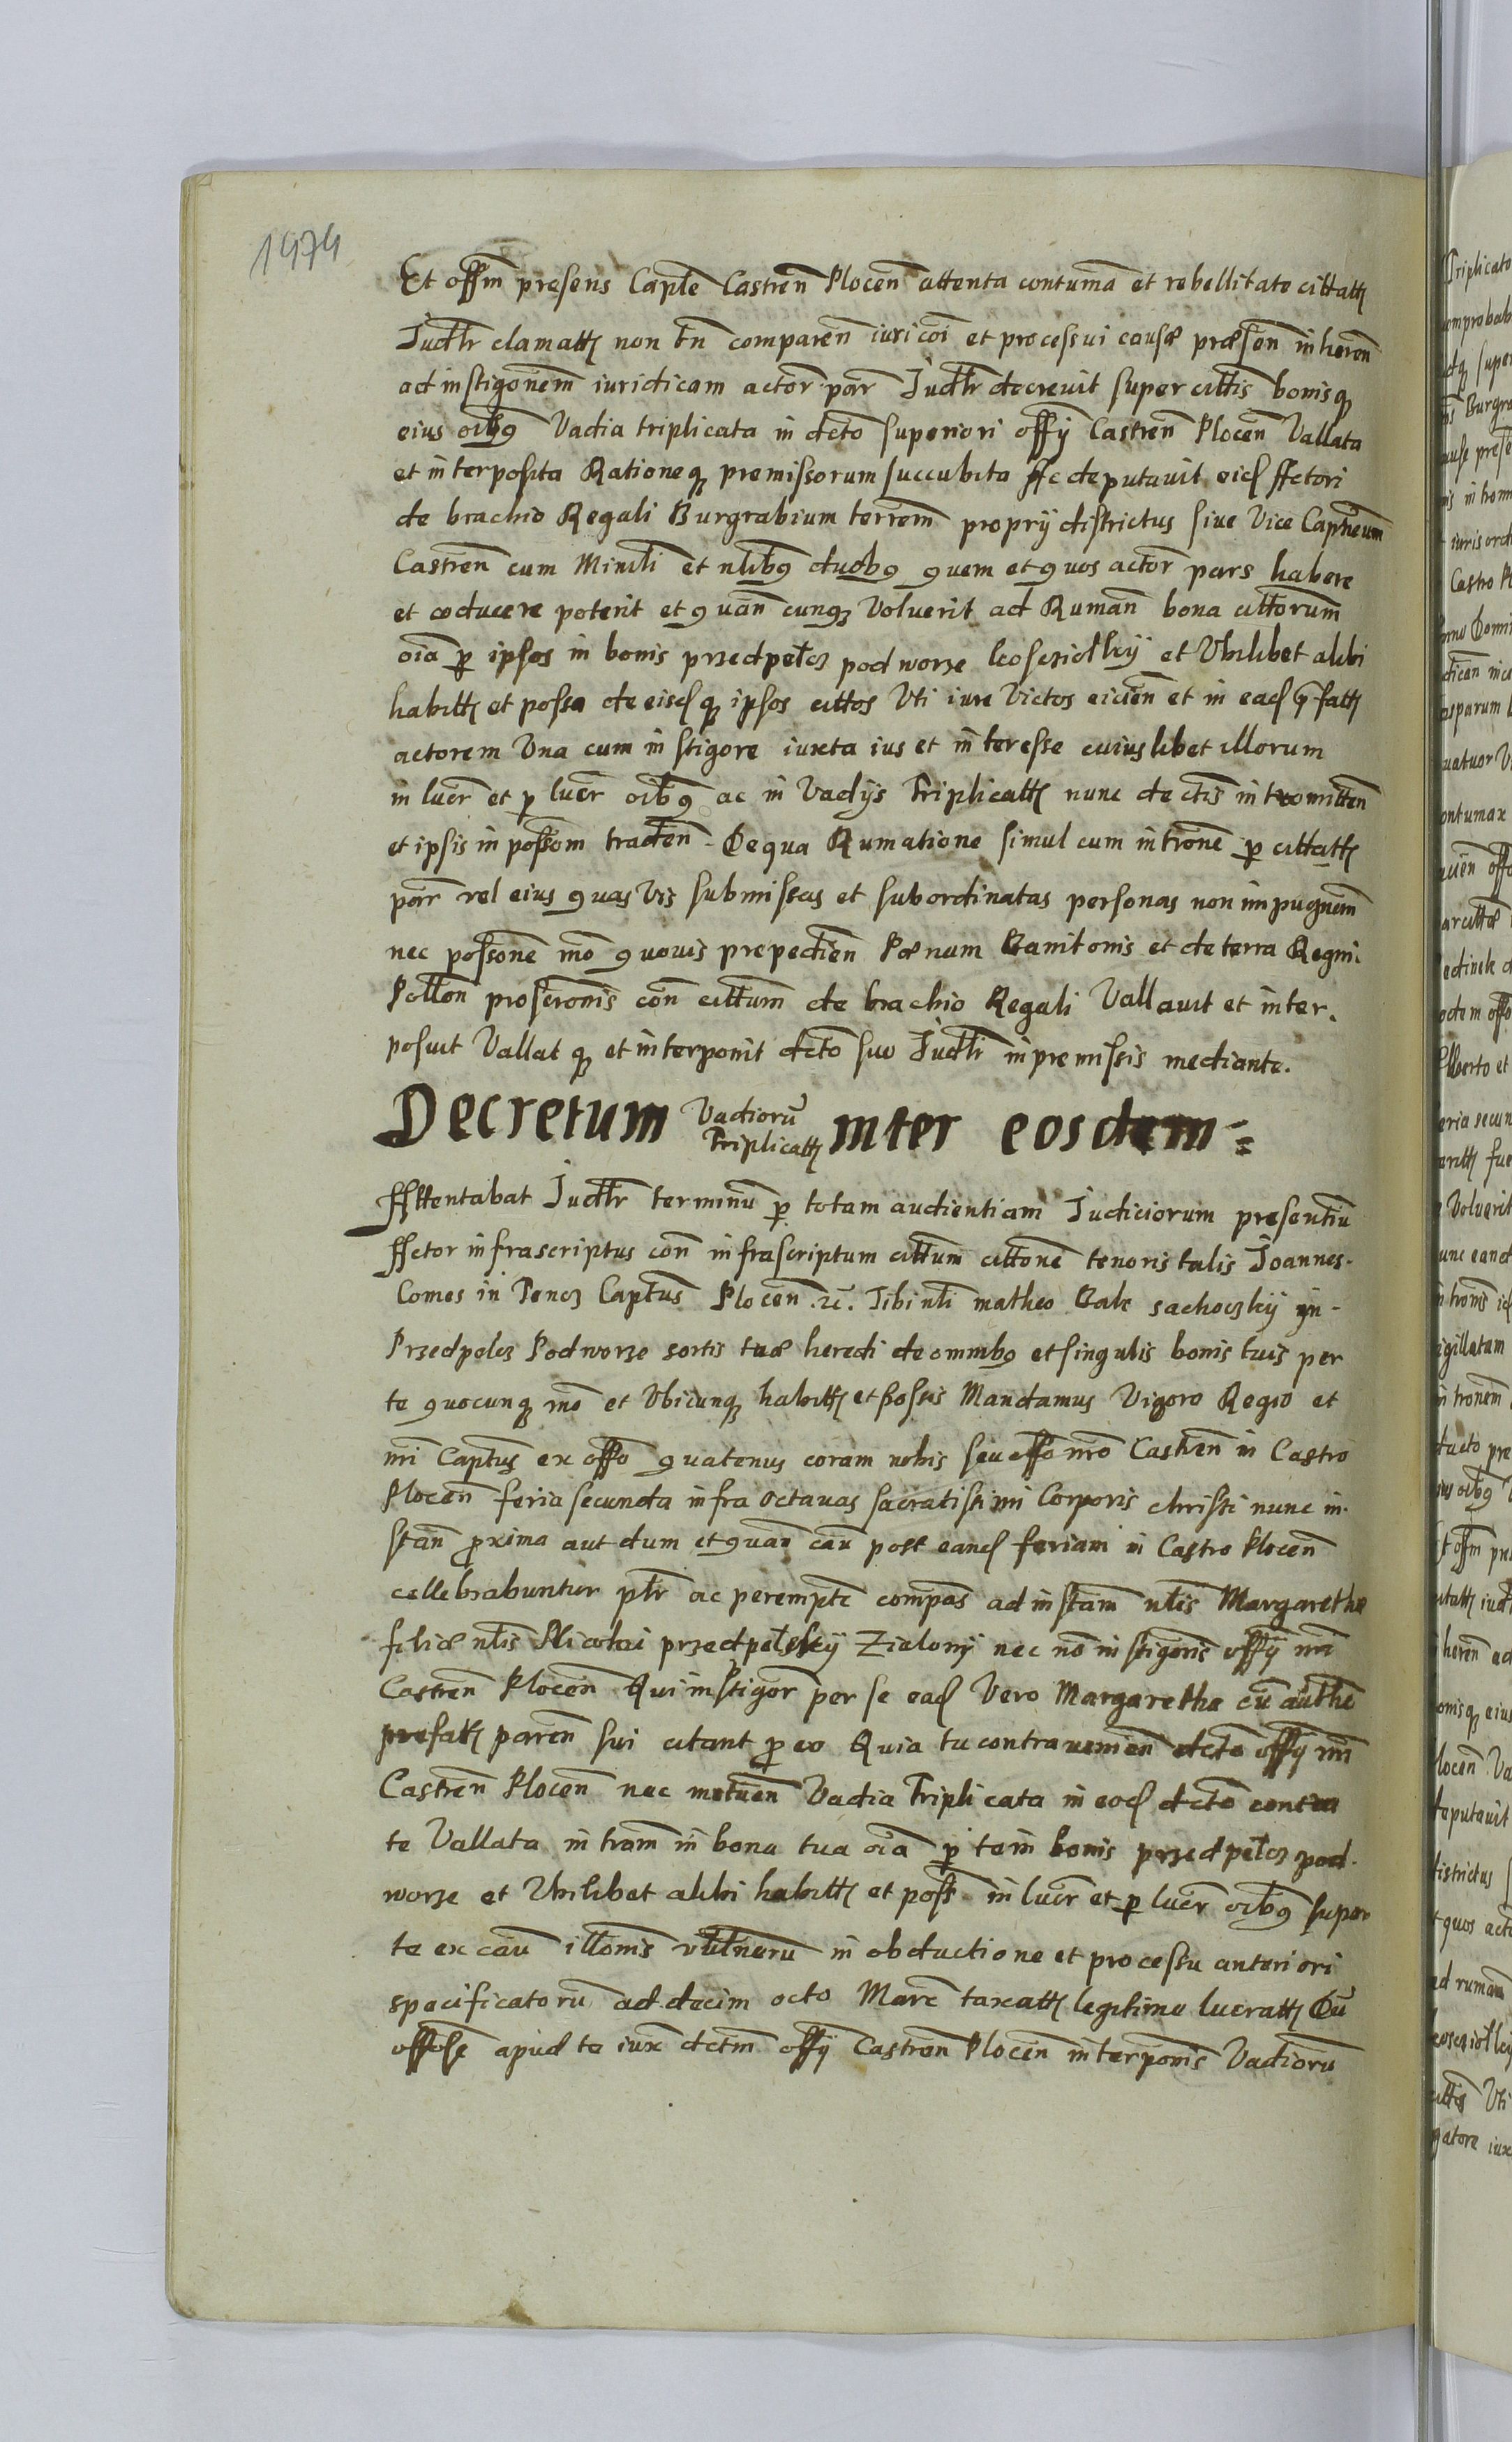 1474
Et offm̄ presens Caple Castren̄ Plocen̄ attenta contuma et rebellitate cittatę
Iudtr clamatę non tn̄ comparen̄ iuri coi et processui causæ præsen̄ inheren̄
ad instigonem iuridicam actor par Iudtr decreuit super cittis bonisq
eius oibg Vadia triplicata in dcto superiori offy Castren̄ Plocen̄ Vallata
et interposita Rationeq premissorum succubita Ac deputauit eid Actori
de brachio Regali Burgrabium terrem proprij districtus siue Vice Capneum
Castren̄ cum Minrli et nlibg duobg quem et quos actor pars habere
et coducere poterit et quan cunq Voluerit ad Ruman̄ bona cittorum
oia p ipsos in bonis przedpelcz podworze koscziolky et Vbilibet alibi
habitę et possa de eisdq ipsos cittos Vti iure Victos eicien̄ et in ead pfatę
actorem Vna cum instigore iuxta ius et interesse cuiuslibet illorum
in lucr et p lucr oibg ac in Vadijs Triplicatę nunc dectis intromitten̄
et ipsis in possom traden̄. De qua Rumatione simul cum introne p cittatę
par vel eius quas vis submissas et subordinatas personas non impugnem
nec possone mo quouis prepedien̄ Pænam Banitonis et de terra Regni
Pollon̄ proscronis con cittum de brachio Regali Vallauit et inter.
posuit Vallatq et interponit dcto suo Iudtr in premissis mediante.
Decretum Vadiorū Triplicatę inter eosdem
Attentabat Iudtr terminū p totam audientiam Iudiciorum presentiū
Actor infrascriptus con infrascriptum cittum cittone tenoris talis Ioannes.
Comes in Tencz Captus Plocen̄ rc. Tibi nli matheo Bak sachoczky in
Przedpelcz Podworze sortis tuæ heredi de omnibg et singulis bonis tuis per
te quocunq mo et Vbicunq habitę et possis Mandamus Vigore Regio et
nri Captus ex offo quatenus coram nobis seu offo nro Castren̄ in Castro
Plocen̄ feria secunda infra octauas sacratissimi Corporis christi nunc in
stan̄ pxima aut dum et quan can post eand feriam in Castro Plocen̄
cellebrabuntur ptr ac perempte compas ad instam nlis Margarethæ
filiæ nlis Nicolai przedpelsky Zielony nec no instigoris offy nri
Castren̄ Plocen̄ Qui instigor per se ead Vero Margaretha cū authe
prefatę paren̄ sui citant p eo Quia tu contra uenien̄ dcto offy nri
Castren̄ Plocen̄ nec metuen̄ Vadia Triplicata in eod dcto contra
te Vallata intram in bona tua oia p te in bonis przedpelcz pod.
worze et Vbilibet alibi habitę et poss in lucr et p lucr oibg super
te ex cau illonis vulnerū in obductione et processu anteriori
specificatorū ad decim octo Marc taxatę legitime lucratę Cū
offose apud te iux dctm offy Castren̄ Plocen̄ interponis Vadiorū